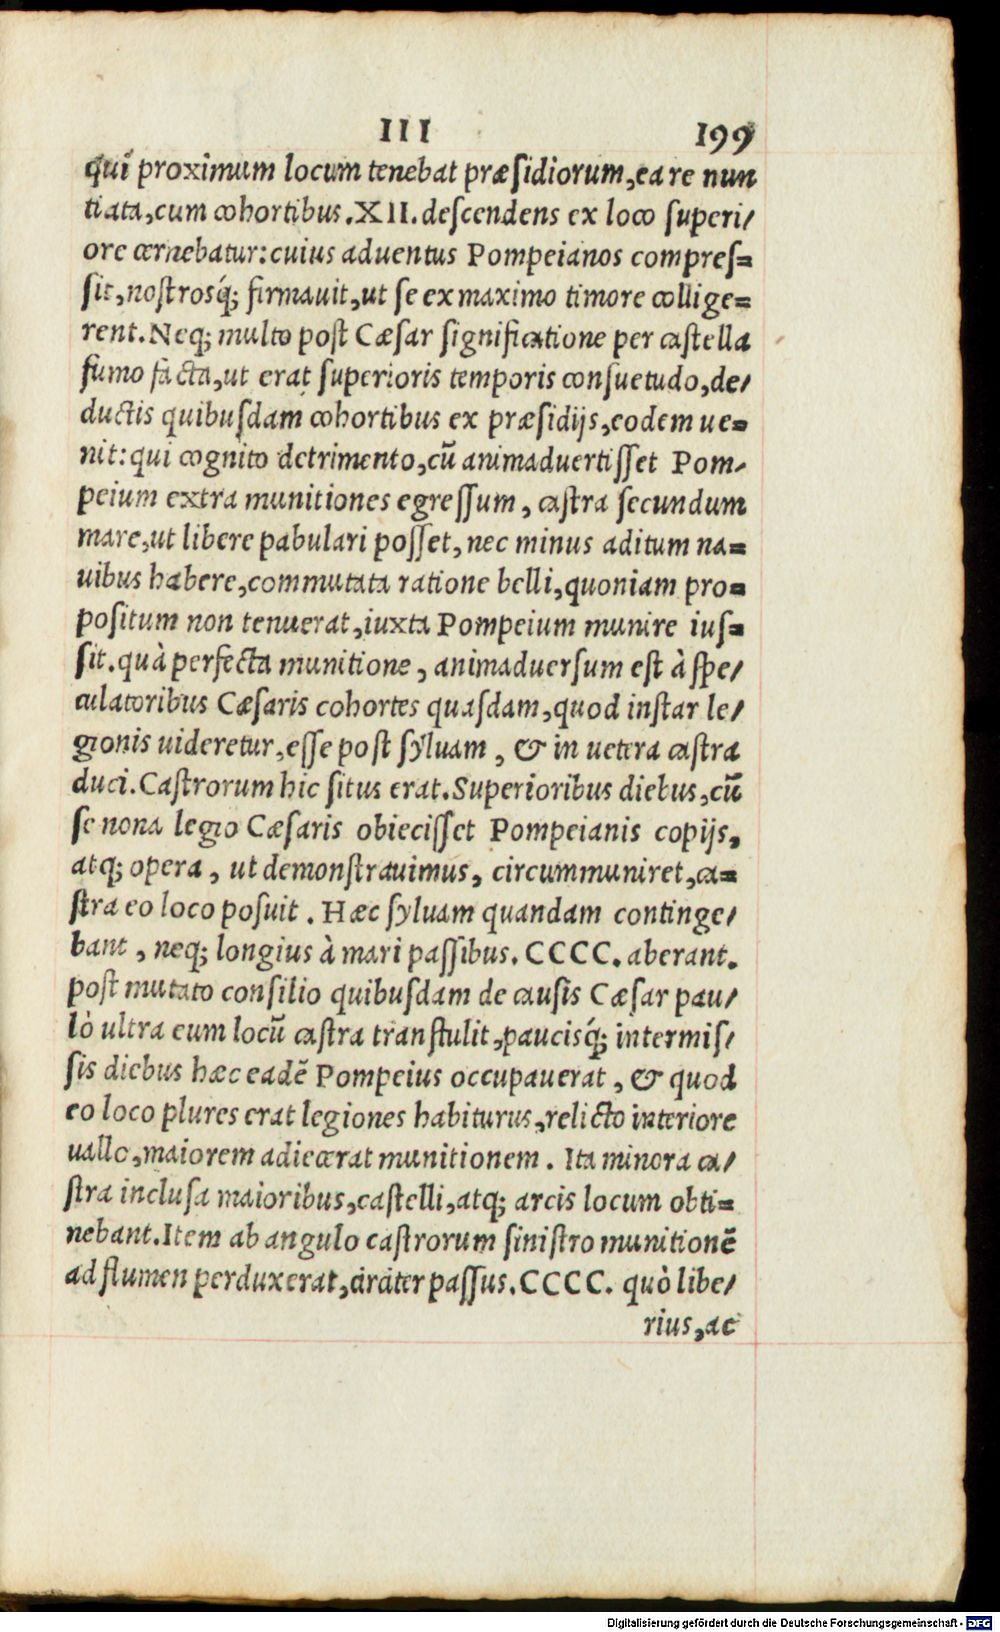 III 199
qui proximum locum tenebat præſidiorum, ea re nun
tiata, cum cohortibus. XII. deſcendens ex loco ſuperi/
ore cernebatur: cuius aduentus Pompeianos compreſ=
ſit, noſtrosq́; firmauit, ut ſe ex maximo timore collige=
rent. Neq; multo poſt Cæſar ſignificatione per caſtella
fumo facta, ut erat ſuperioris temporis conſuetudo, de/
ductis quibuſdam cohortibus ex præſidijs, eodem ue=
nit: qui cognito detrimento, cū animaduertiſſet Pom/
peium extra munitiones egreſſum, caſtra ſecundum
mare, ut libere pabulari poſſet, nec minus aditum na=
uibus habere, commutata ratione belli, quoniam pro=
poſitum non tenuerat, iuxta Pompeium munire iuſ=
ſit. quà perfecta munitione, animaduerſum eſt à ſpe/
culatoribus Cæſaris cohortes quaſdam, quod inſtar le/
gionis uideretur, eſſe poſt ſyluam, & in uetera caſtra
duci. Caſtrorum hic ſitus erat. Superioribus diebus, cū
ſe nona legio Cæſaris obieciſſet Pompeianis copijs,
atq; opera, ut demonſtrauimus, circummuniret, ca=
ſtra eo loco poſuit. Hæc ſyluam quandam continge/
bant, neq; longius à mari paſſibus. CCCC. aberant.
poſt mutato conſilio quibuſdam de cauſis Cæſar pau/
lò ultra eum locū caſtra tranſtulit, paucisq́; intermiſ/
ſis diebus hæc eadē Pompeius occupauerat, & quod
eo loco plures erat legiones habiturus, relicto interiore
uallo, maiorem adiecerat munitionem. Ita minora ca/
ſtra incluſa maioribus, caſtelli, atq; arcis locum obti=
nebant. Item ab angulo caſtrorum ſiniſtro munitionē
ad flumen perduxerat, circiter paſſus. CCCC. quò libe/
rius, ac
Digitalisierung gefördert durch die Deutsche Forschungsgemeinschaft - DFG